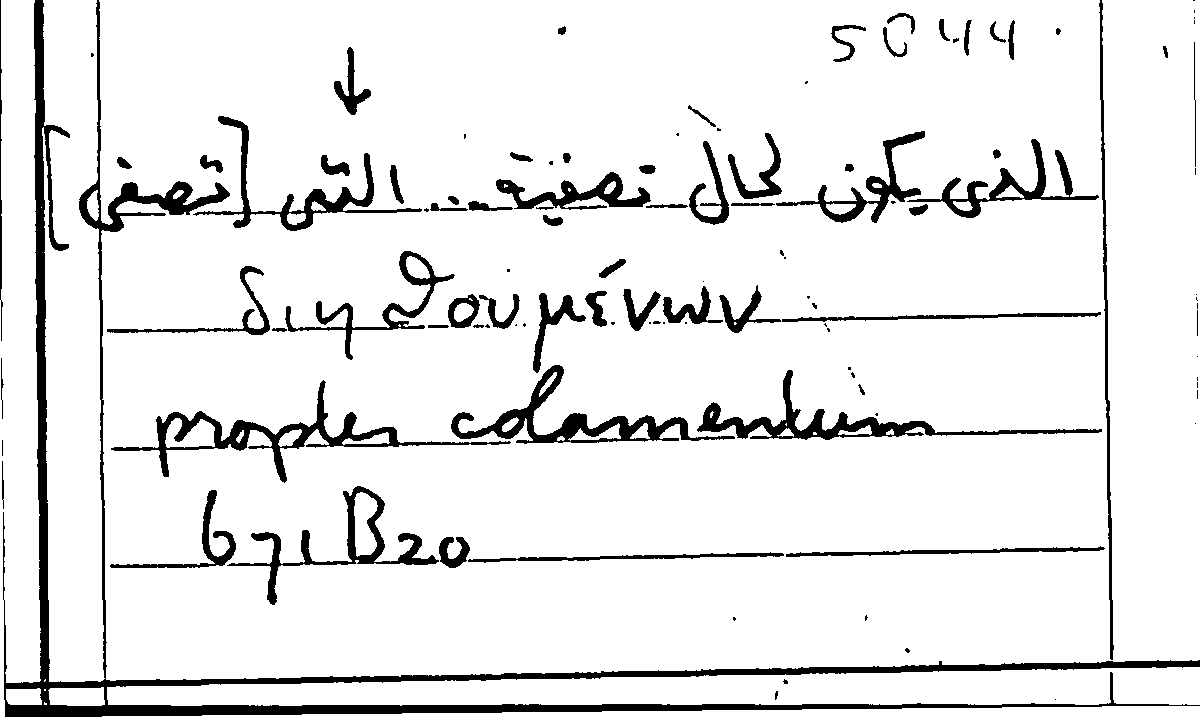 5844
↓
الذى يكون لحال تصفية ... التى [تصفى]
διηθουμένων
propter colamentum
671 B20